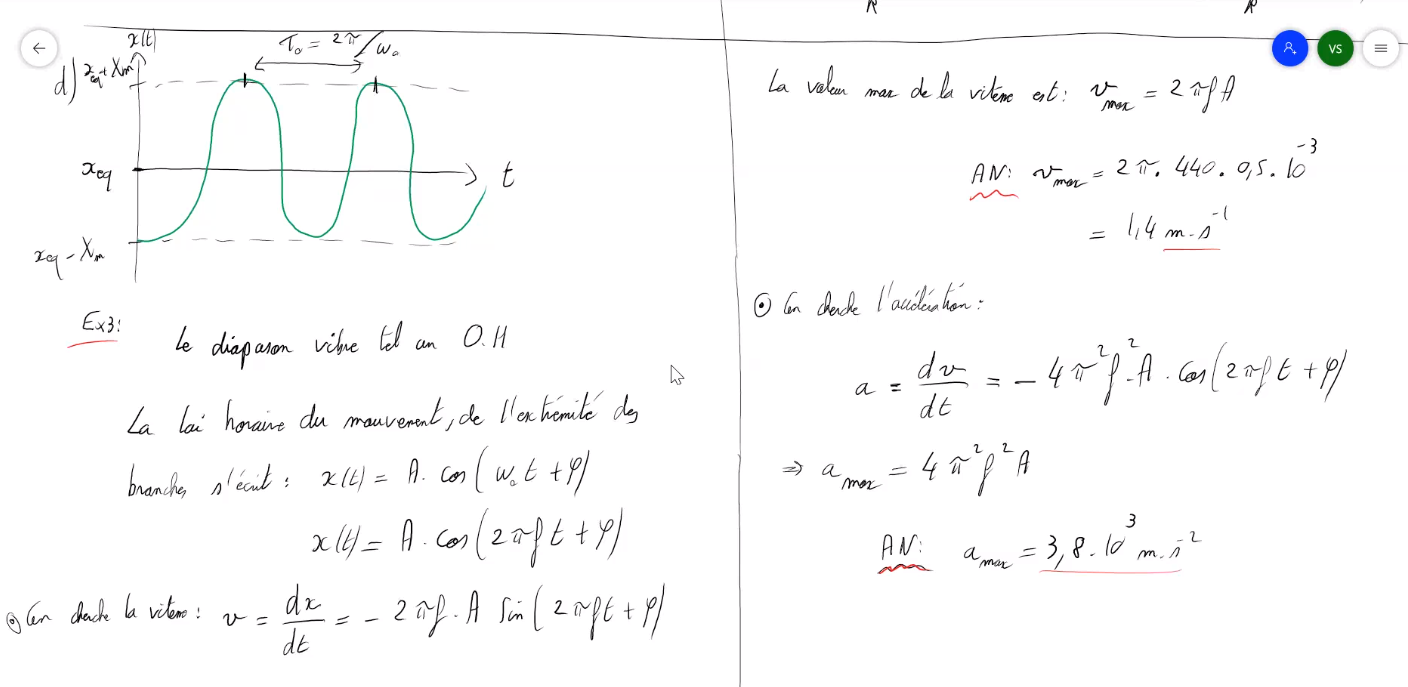 d)
x(t)
x_eq + X_m
T₀ = 2π/ω₀
x_eq
t
x_eq - X_m
Ex3:
Le diapason vibre tel un O.H
La loi horaire du mouvement, de l'extrémité des
branches s'écrit : x(t) = A. cos(ω₀t + φ)
x(t) = A. cos(2πft + φ)
⊙ On cherche la vitesse : v = dx/dt = - 2πf. A sin(2πft + φ)
La valeur max de la vitesse est : v_max = 2πfA
AN: v_max = 2π. 440. 0,5. 10⁻³
= 1,4 m.s⁻¹
⊙ On cherche l'accélération :
a = dv/dt = - 4π²f².A. cos(2πft + φ)
⇒ a_max = 4π²f²A
AN: a_max = 3,8. 10³ m.s⁻²
VS